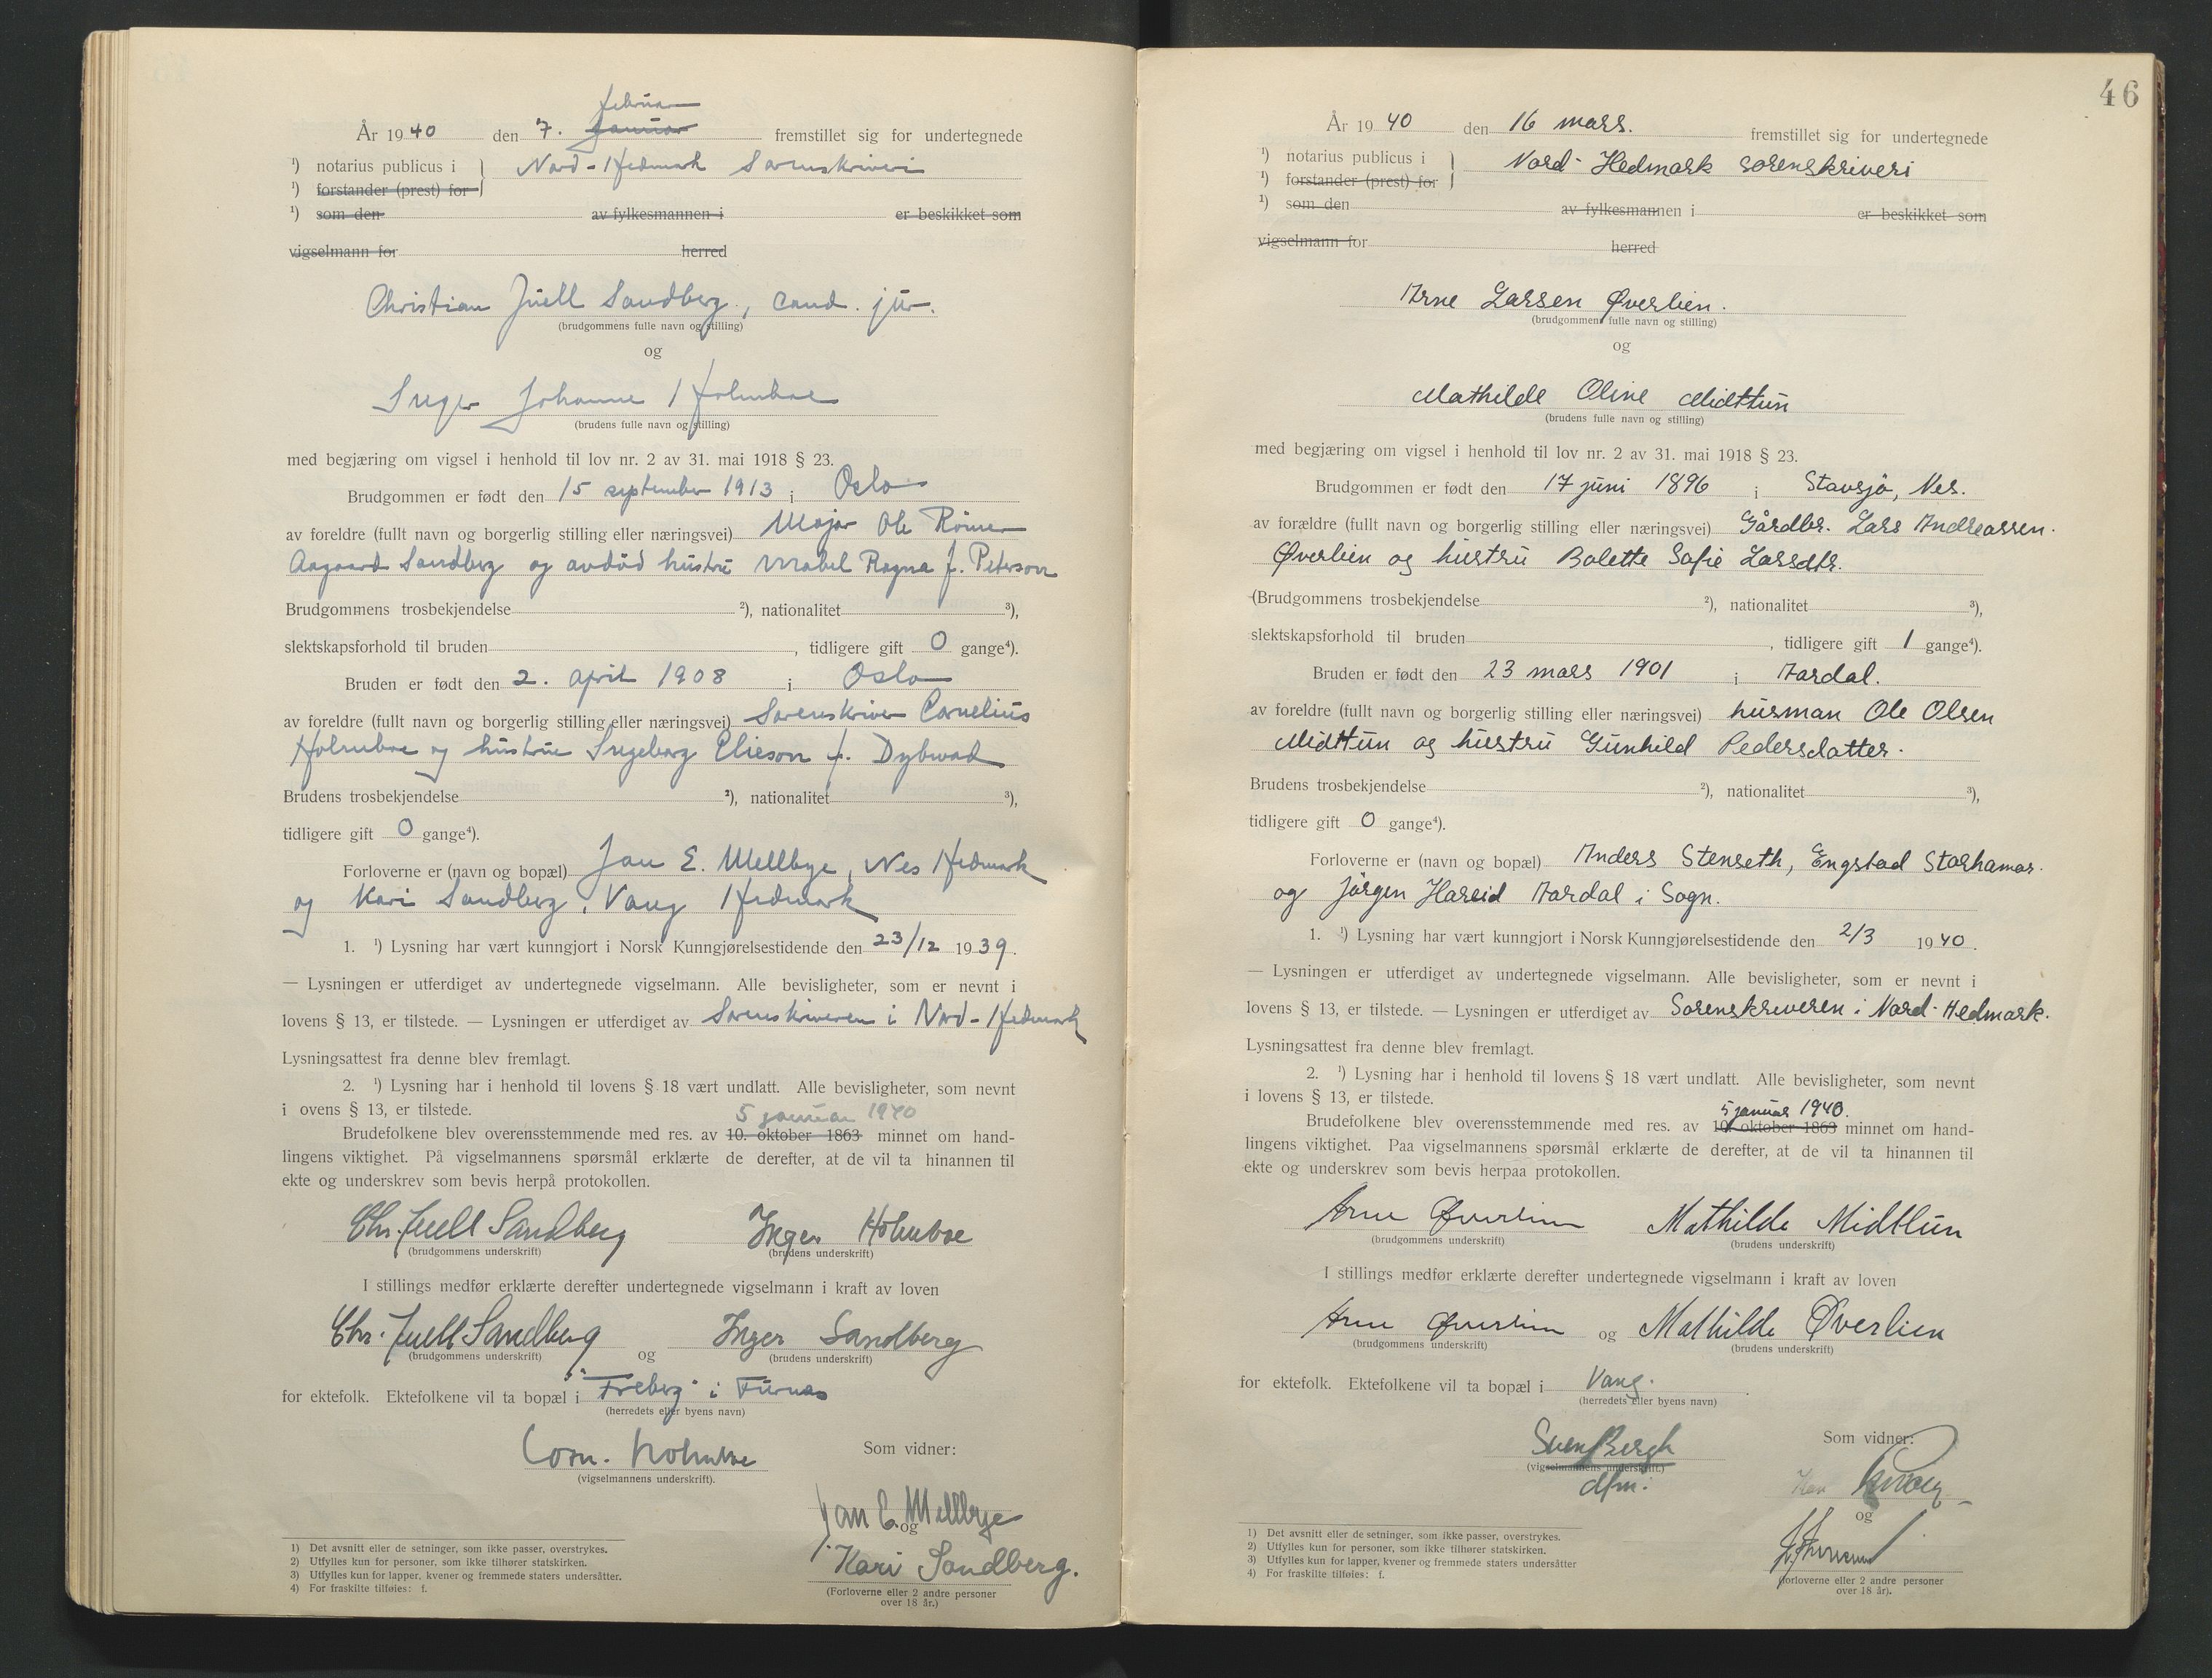 februar
År 1940 den 7. januar fremstillet sig for undertegnede
¹) notarius publicus i } Nord-Hedmark Sorenskriveri
¹) forstander (prest) for
¹) som den av fylkesmannen i er beskikket som
vigselmann for herred
Christian Juell Sandberg, cand. jur.
(brudgommens fulle navn og stilling)
og
Inger Johanne Holmboe
(brudens fulle navn og stilling)
med begjæring om vigsel i henhold til lov nr. 2 av 31. mai 1918 § 23.
Brudgommen er født den 15 september 1913 i Oslo
av foreldre (fullt navn og borgerlig stilling eller næringsvei) Major Ole Rømer
Aagaard Sandberg og avdød hustru Mabel Ragna f. Peterson
Brudgommens trosbekjendelse ²), nationalitet ³),
slektskapsforhold til bruden , tidligere gift 0 gange⁴).
Bruden er født den 2. april 1908 i Oslo
av foreldre (fullt navn og borgerlig stilling eller næringsvei) Sorenskriver Cornelius
Holmboe og hustru Ingeborg Elieson f. Dybwad
Brudens trosbekjendelse ²), nationalitet ³),
tidligere gift 0 gange⁴).
Forloverne er (navn og bopæl) Jan E. Mellbye, Nes Hedmark
og Kari Sandberg, Vang Hedmark
1. ¹) Lysning har vært kunngjort i Norsk Kunngjørelsestidende den 23/12 1939.
— Lysningen er utferdiget av undertegnede vigselmann. Alle bevisligheter, som er nevnt i
lovens § 13, er tilstede. — Lysningen er utferdiget av Sorenskriveren i Nord-Hedmark
Lysningsattest fra denne blev fremlagt.
2. ¹) Lysning har i henhold til lovens § 18 vært undlatt. Alle bevisligheter, som nevnt
i ovens § 13, er tilstede.
5 januar 1940
Brudefolkene blev overensstemmende med res. av 10. oktober 1863 minnet om hand-
lingens viktighet. På vigselmannens spørsmål erklærte de derefter, at de vil ta hinannen til
ekte og underskrev som bevis herpå protokollen.
Chr. Juell Sandberg Inger Holmboe
(brudgommens underskrift) (brudens underskrift)
I stillings medfør erklærte derefter undertegnede vigselmann i kraft av loven
Chr. Juell Sandberg og Inger Sandberg
(brudgommens underskrift) (brudens underskrift)
for ektefolk. Ektefolkene vil ta bopæl i "Freberg" i Furnes
(herredets eller byens navn)
Corn. Holmboe
(vigselmannens underskrift).
Som vidner:
Jan E. Mellbye
og
Kari Sandberg.
(Forloverne eller 2 andre personer
over 18 år.)
1) Det avsnitt eller de setninger, som ikke passer, overstrykes.
2) Utfylles kun for personer, som ikke tilhører statskirken.
3) Utfylles kun for lapper, kvener og fremmede staters undersåtter.
4) For fraskilte tilføies: f.
46
År 1940 den 16 mars. fremstillet sig for undertegnede
¹) notarius publicus i } Nord-Hedmark sorenskriveri
¹) forstander (prest) for
¹) som den av fylkesmannen i er beskikket som
vigselmann for herred
Arne Larsen Øverlien.
(brudgommens fulle navn og stilling)
og
Mathilde Oline Midttun
(brudens fulle navn og stilling)
med begjæring om vigsel i henhold til lov nr. 2 av 31. mai 1918 § 23.
Brudgommen er født den 17 juni 1896 i Stavsjø, Nes.
av forældre (fullt navn og borgerlig stilling eller næringsvei) Gårdbr. Lars Andreassen
Øverlien og hustru Bolette Sofie Larsdtr.
(Brudgommens trosbekjendelse ²), nationalitet ³),
slektskapsforhold til bruden , tidligere gift 1 gange⁴).
Bruden er født den 23 mars 1901 i Aardal.
av foreldre (fullt navn og borgerlig stilling eller næringsvei) husman Ole Olsen
Midttun og hustru Gunhild Pedersdatter.
Brudens trosbekjendelse ²), nationalitet ³),
tidligere gift 0 gange⁴).
Forloverne er (navn og bopæl) Anders Stenseth, Engstad Storhamar.
og Jørgen Hareid Aardal i Sogn.
1. ¹) Lysning har vært kunngjort i Norsk Kunngjørelsestidende den 2/3 1940.
— Lysningen er utferdiget av undertegnede vigselmann. Alle bevisligheter, som er nevnt i
lovens § 13, er tilstede. — Lysningen er utferdiget av Sorenskriveren i Nord-Hedmark.
Lysningsattest fra denne blev fremlagt.
2. ¹) Lysning har i henhold til lovens § 18 vært undlatt. Alle bevisligheter, som nevnt
i lovens § 13, er tilstede.
5 januar 1940.
Brudefolkene blev overensstemmende med res. av 10. oktober 1863 minnet om hand-
lingens viktighet. Paa vigselmannens spørsmål erklærte de derefter, at de vil ta hinannen til
ekte og underskrev som bevis herpaa protokollen.
Arne Øverlien Mathilde Midttun
(brudgommens underskrift) (brudens underskrift)
I stillings medfør erklærte derefter undertegnede vigselmann i kraft av loven
Arne Øverlien og Mathilde Øverlien
(brudgommens underskrift) (brudens underskrift)
for ektefolk. Ektefolkene vil ta bopæl i Vang.
(herredets eller byens navn)
Sven Bergh
(vigselmannens underskrift.)
dfm.
Som vidner:
og
(forloverne eller 2 andre personer
over 18 år).
1) Det avsnitt eller de setninger, som ikke passer, overstrykes.
2) Utfylles kun for personer, som ikke tilhører statskirken.
3) Utfylles kun for lapper, kvener og fremmede staters undersåtter
4) For fraskilte tilføies: f.